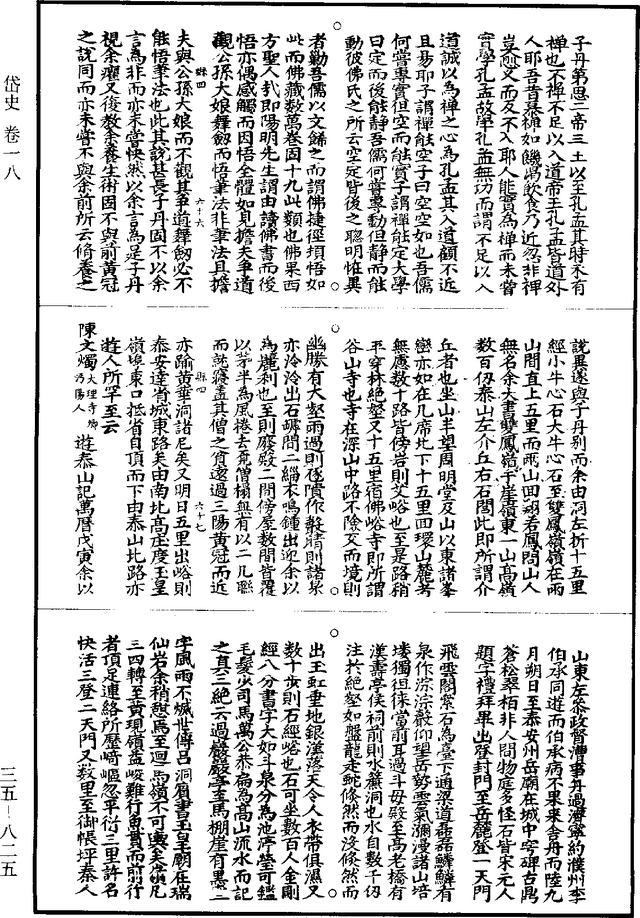 岱史 卷一八
子丹第思二帝三王以至孔孟其時未有
禅也不禅不足以入道帝王孔孟皆道外
人耶吾昔慕禅如饑渴飲食乃近忽非禅
豈愈文而反不入耶人能實為禅而未嘗
實學孔孟故學孔孟無功而謂不足以入
道誠以為禅之心為孔孟其入道顧不近
且易耶子謂禅能空子曰空空如也吾儒
何嘗專實但空而能實子謂禅能定大學
曰定而後能静吾儒何嘗專動但静而能
動彼佛氏之所云空定皆後之聰明惟異
者勸吾儒以文歸之而謂佛捷徑頓悟如
此而佛藏數萬卷固十九此類也佛果西
方聖人㢤即陽明先生謂由讀佛書而後
悟亦偶感觸而因悟全體如見擔夫爭道
觀公孫大娘舞劒而悟筆法非筆法且擔
縣四 六十六
夫與公孫大娘而不觀其爭道舞劒必不
能悟筆法也此其說甚長子丹固不以余
言為非而亦未嘗快然以余言為是子丹
視余癯又復教余養生術固不與前黄冠
之說同而亦未嘗不與余前所云脩養之
說異遂與子丹别而余由洞左折十五里
經小心石大牛心石至雙鳳嶺嶺在兩
山間直上五里而兩山回翔若鳳問山人
無名余大書雙鳳嶺于崖嶺東一山高嶺
數百仞泰山左介丘右石閭此即所謂介
丘者也坐山半望周明堂及山以東諸峯
巒亦如在几席北下十五里四環山麓若
無應數十路皆傍岩則艾峪也至是路稍
平穿林絕壑又十五里宿佛峪寺即所謂
谷山寺也寺在深山中路不險艾而境則
幽勝有大壑雨過則隤作殷則諸泉
亦泠泠出石磵間二緇衣鳴鍾出迎余以
為麓刹也至則廢殿二間傍屋數間皆覆
以茅半為風捲去僧榻無有以二几聮
而就寢盖其僧之貧逺過三陽黄冠而近
縣四 六十七
亦踰黄華洞諸尼矣又明日五里出峪則
泰安達省城東路矣由南北高庄度玉皇
嶺埠東口抵省自頂而下由泰山北路亦
遊人所罕至云
陳文燭 大理寺卿沔陽人 遊泰山記萬暦戊寅余以
山東左叅政督漕事丹過濟寧約濮州李
伯承同遊而伯承病不果來舎舟而陸九
月朔日至泰安州岳廟在城中穹碑古鼎
蒼松翠栢非人間物庭多怪石皆宋元人
題字禮拜畢出登封門至岳麓登一天門
飛雲閣案石為臺下通梁道磊磊鱗鱗有
泉作淙淙殿仰望岳勢雲氣瀰漫諸山培
塿獨徂徠當前耳過斗母殿至高老橋有
漢壽亭侯祠前則水簾洞也水自數千仞
注於絕壑如盤龍走蛇倐然而没倐然而
出玉虹垂地銀漢落天令人衣帶俱濕又
數十歩則石經峪也石可坐數百人金剛
經八分書字大如斗泉分為池渟瑩可鑑
毛髪少司馬萬公恭扁為高山流水而記
之真三絕云過巖巖亭至馬棚崖有墨二
字風雨不㓕世傳吕洞賔書玉皇廟在瑞
仙岩余稍憩焉至迴馬嶺不可輿矣當凡
三四轉至黄現嶺益峻難行魚貫而前行
者頂足連絡所歷崎嶇忽平衍三里許名
快活三登二天門又數里至御帳坪秦人
三五－八二五